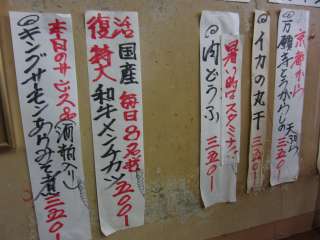 京都から
◎万願寺とうがらしの天ぷら
三五〇-
◎イカの丸干
三五〇-
暑い時はスタミナ!
◎肉どうふ
三五〇-
復活
特大
国産 毎日8名也
和牛メンチカツ
五〇〇-
本日のサービス品(酒粕入り)
◎キングサーモンあらみそ煮
三五〇-